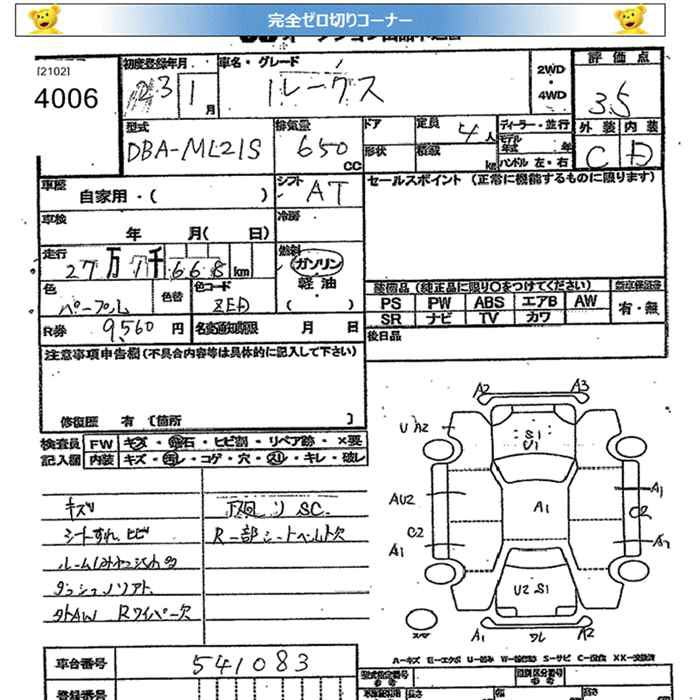 完全ゼロ切りコーナー
[2102]
4006
初度登録年月
車名・グレード
23 1 月
ルークス
2WD
・
4WD
評価点
3.5
型式
DBA-ML21S
排気量
650 CC
ドア
定員 4人
形状
積載 kg
ディーラー・並行
モデル年式 年
ハンドル 左・右
外装 内装
C D
車歴
自家用・( )
シフト AT
セールスポイント (正常に機能するものに限ります)
車検
年 月( 日)
冷房
走行
27万7千668km
燃料
ガソリン
・
軽油
( )
色
パープル
色替
色コード
ZED
装備品 (純正品に限り○をつけてください)
新車保証書
PS PW ABS エアB AW
有・無
SR ナビ TV カワ
R券 9,560 円
名変通知期限 月 日
後日品
注意事項申告欄 (不具合内容等は具体的に記入して下さい)
修復歴 有 〔箇所 〕
検査員
記入欄
FW キズ・飛石・ヒビ割・リペア跡・×要
内装 キズ・汚レ・コゲ・穴・スレ・キレ・破レ
キズ
シートすれ、ヒビ
外AW Rワイパー欠
下廻り SC.
A2 A3
U A2
S1
U1
AU2
A1
A1
C2
C2
A1
U2 S1
A1
A2
A-キズ E-エクボ U-凹み S-サビ C-腐食
車台番号 541083
登録番号
型式指定番号
類別区分番号